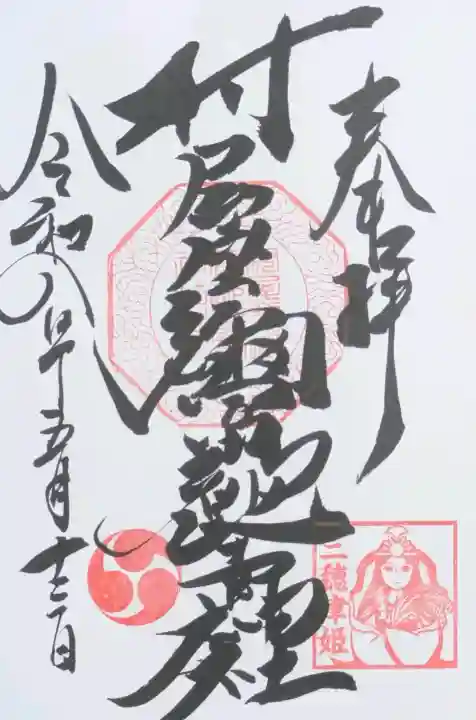 奉拝
村屋坐彌冨都比賣神社
令和八年五月十二日
三穂津姫